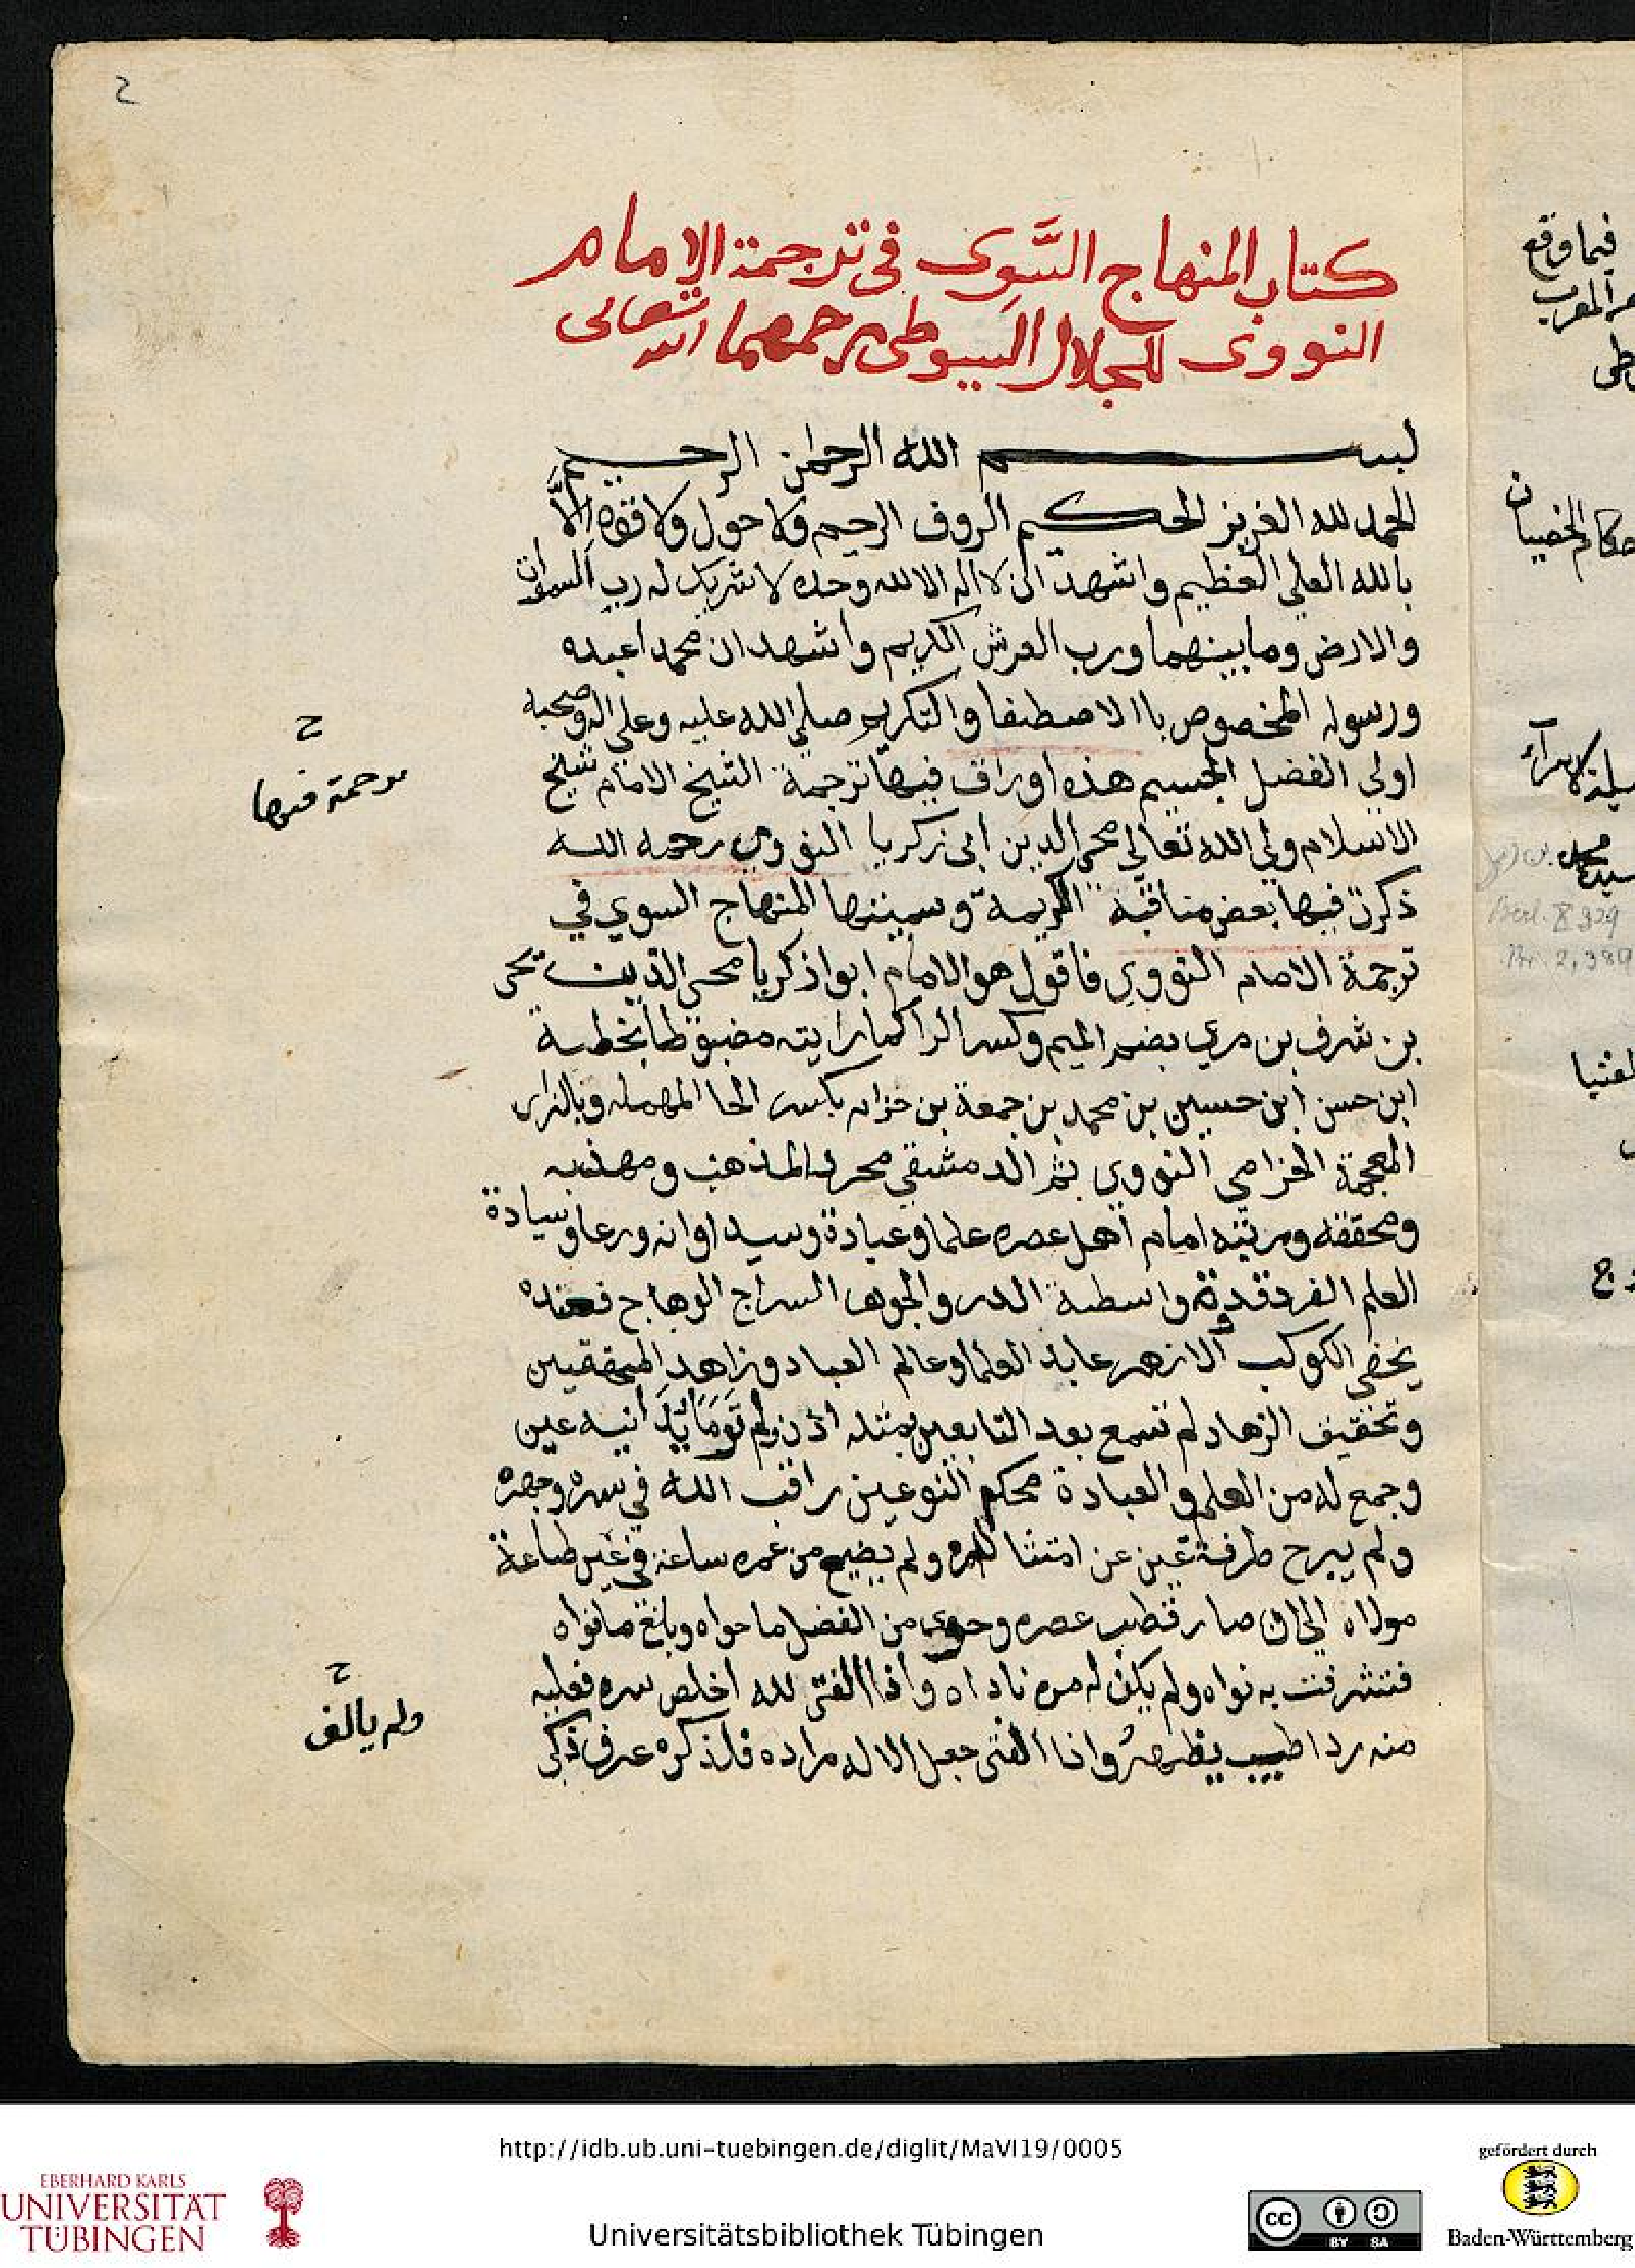 2
كتاب المنهاج السَّوِى فى ترجمة الامام
النووى للجلال السيوطى رحمهما الله تعالى
بسم الله الرحمن الرحيم
الحمد لله العزيز الحكيم الروف الرحيم ولا حول ولا قوة الَّا
بالله العلي العظيم واشهد ان لا اله الا الله وحده لا شريك له رب السموات
والارض وما بينهما ورب العرش الكريم واشهد ان محمدا عبده
ورسوله المخصوص باالاصطفا والتكريم صلي الله عليه وعلي اله وصحبه
اولي الفضل الجسيم هذه اوراق فيها ترجمة الشيخ الامام شيخ
الاسلام ولي الله تعالي محي الدين ابى زكريا النووي رحمه الله
ذكرت فيها بعض مناقبه الكريمة وسميتها المنهاج السوي في
ترجمة الامام النووي فاقول هو الامام ابوا زكريا محي الدين يحى
بن شرف بن مري بضم الميم وكسر الرا كما رايته مضبوطا بخطه
ابن حسن ابن حسين بن محمد بن جمعة بن حزام بكسر الحا المهمله وبالزاى
المعجمة الحزامي النووي ثم الدمشقي محرر المذهب ومهذبه
ومحققه ومرتبه امام اهل عصره علما وعبادة وسيد اوانه ورعا وسيادة
العلم الفرد فدونه واسطة الدر والجوهر السراج الوهاج فعنده
يخفي الكوكب الازهر عابد العلما وعالم العباد وزاهد المحققين
وتحقيق الزهاد لم تسمع بعد التابعين بمثله اذن ولم تَرَ مَا يُدَانيه عين
وجمع له من العلم والعبادة محكم النوعين راقب الله في سره وجهره
ولم يبرح طرفة عين عن امتثال امره ولم يضيع من عمره ساعة في غير طاعة
مولاه الي ان صار قطب عصره وحوى من الفضل ما حواه وبلغ ما نواه
فتشرفت به نواه ولم يكن له من ناداه واذا الفتى لله اخلص سره فعليه
منه ردا طيب يظهر واذا الفتى جعل الاله مراده فلذكره عرف ذكى
ح
ترجمة فيها
ح
وله يالف
فيما وقع
http://idb.ub.uni-tuebingen.de/diglit/MaVI19/0005
EBERHARD KARLS
UNIVERSITÄT
TÜBINGEN
Universitätsbibliothek Tübingen
cc BY SA
gefördert durch
Baden-Württemberg